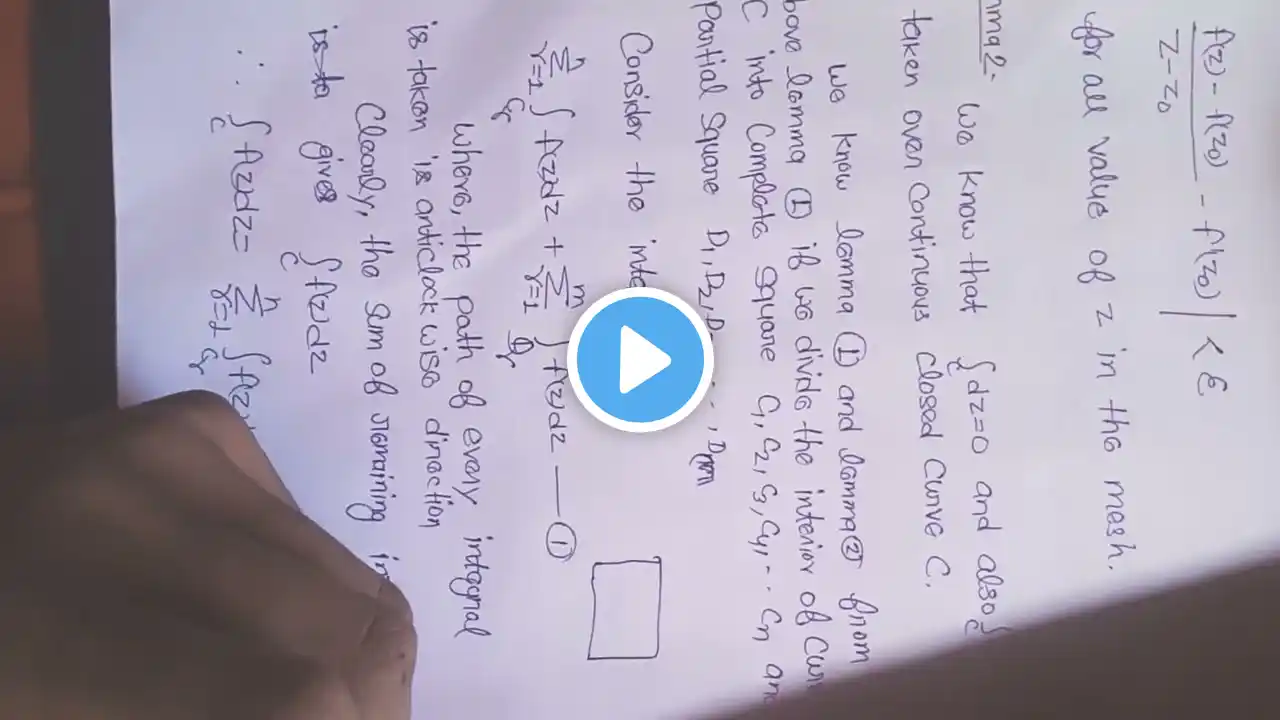 f(z) - f(z₀) / z - z₀ - f'(z₀) | < ε
for all value of z in the mesh.
mma 2- We know that ∫_C dz=0 and also ∫_C
taken over continuous closed curve C.
We know lemma ① and lemma ② from
bove lemma ① if we divide the interior of Cur
C into Complete square C₁, C₂, C₃, C₄, -- Cn an
Partial square D₁, D₂, D ..., Dm
Consider the inte
n∑r=1 ∫_Cr f(z)dz + m∑r=1 ∫_Dr f(z)dz —— ①
where, the path of every integral
is taken is anticlockwise direction
Clearly, the sum of remaining in
is to gives ∫_C f(z)dz
∴ ∫_C f(z)dz = n∑r=1 ∫_Cr f(z)